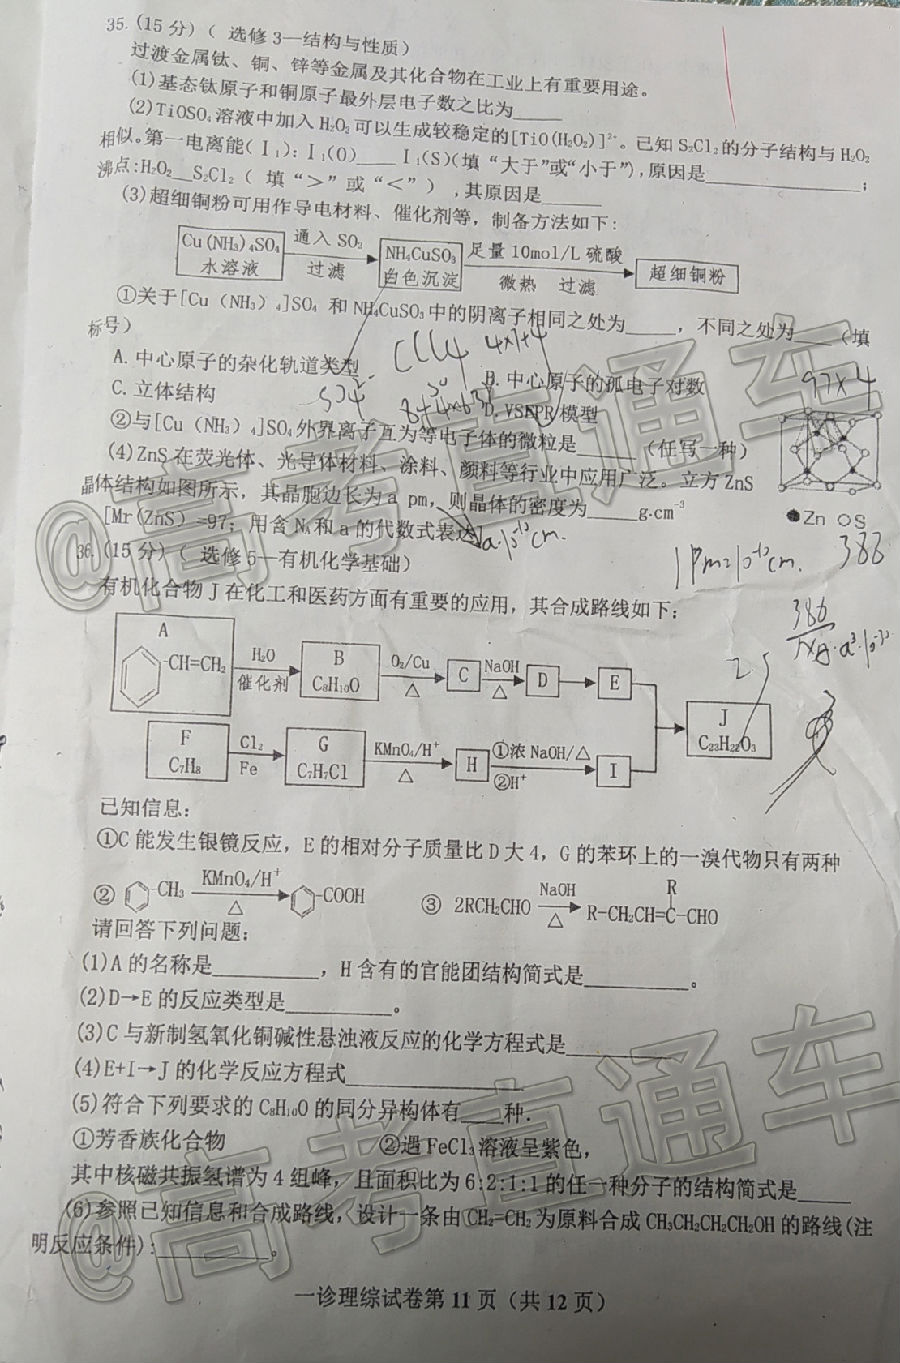 35. (15 分) ( 选修 3—结构与性质)
过渡金属钛、铜、锌等金属及其化合物在工业上有重要用途。
(1)基态钛原子和铜原子最外层电子数之比为____
(2)TiOSO₄溶液中加入 H₂O₂可以生成较稳定的[TiO(H₂O₂)]²⁺。已知 S₂Cl₂的分子结构与 H₂O₂
相似。第一电离能(I₁): I₁(O)____I₁(S)(填“大于”或“小于”),原因是____________;
沸点:H₂O₂__S₂Cl₂( 填“>”或“<”) ,其原因是______
(3)超细铜粉可用作导电材料、催化剂等，制备方法如下:
Cu(NH₃)₄SO₄ 水溶液 通入 SO₂ 过滤 NH₄CuSO₃ 白色沉淀 足量 10mol/L 硫酸 微热 过滤 超细铜粉
①关于[Cu(NH₃)₄]SO₄ 和 NH₄CuSO₃中的阴离子相同之处为____，不同之处为____(填
标号)
A. 中心原子的杂化轨道类型
B. 中心原子的孤电子对数
C. 立体结构
D. VSEPR 模型
CCl₄ 4×1+4
97×4
②与[Cu(NH₃)₄]SO₄外界离子互为等电子体的微粒是____(任写一种)
(4)ZnS 在荧光体、光导体材料、涂料、颜料等行业中应用广泛。立方 ZnS
晶体结构如图所示，其晶胞边长为 a pm，则晶体的密度为____g·cm⁻³
[Mr(ZnS) =97；用含 Nₐ和 a 的代数式表达]
Zn S
a·10⁻¹⁰cm.
1pm=10⁻¹⁰cm.
388
36. (15 分) ( 选修 5—有机化学基础)
有机化合物 J 在化工和医药方面有重要的应用，其合成路线如下:
A CH=CH₂ H₂O 催化剂 B C₈H₁₀O O₂/Cu △ C NaOH △ D E
F C₇H₈ Cl₂ Fe G C₇H₇Cl KMnO₄/H⁺ △ H ①浓 NaOH/△ ②H⁺ I
J C₂₃H₂₂O₃
已知信息:
①C 能发生银镜反应，E 的相对分子质量比 D 大 4，G 的苯环上的一溴代物只有两种
② CH₃ KMnO₄/H⁺ △ COOH ③ 2RCH₂CHO NaOH △ R-CH₂CH=C-CHO R
请回答下列问题:
(1)A 的名称是________，H 含有的官能团结构简式是________。
(2)D→E 的反应类型是________。
(3)C 与新制氢氧化铜碱性悬浊液反应的化学方程式是________
(4)E+I→J 的化学反应方程式____________
(5)符合下列要求的 C₈H₁₀O 的同分异构体有____种.
①芳香族化合物 ②遇 FeCl₃溶液呈紫色,
其中核磁共振氢谱为 4 组峰，且面积比为 6:2:1:1 的任一种分子的结构简式是____
(6)参照已知信息和合成路线，设计一条由 CH₂=CH₂为原料合成 CH₃CH₂CH₂CH₂OH 的路线(注
明反应条件):________。
一诊理综试卷第 11 页（共 12 页）
@高考直通车
@高考直通车